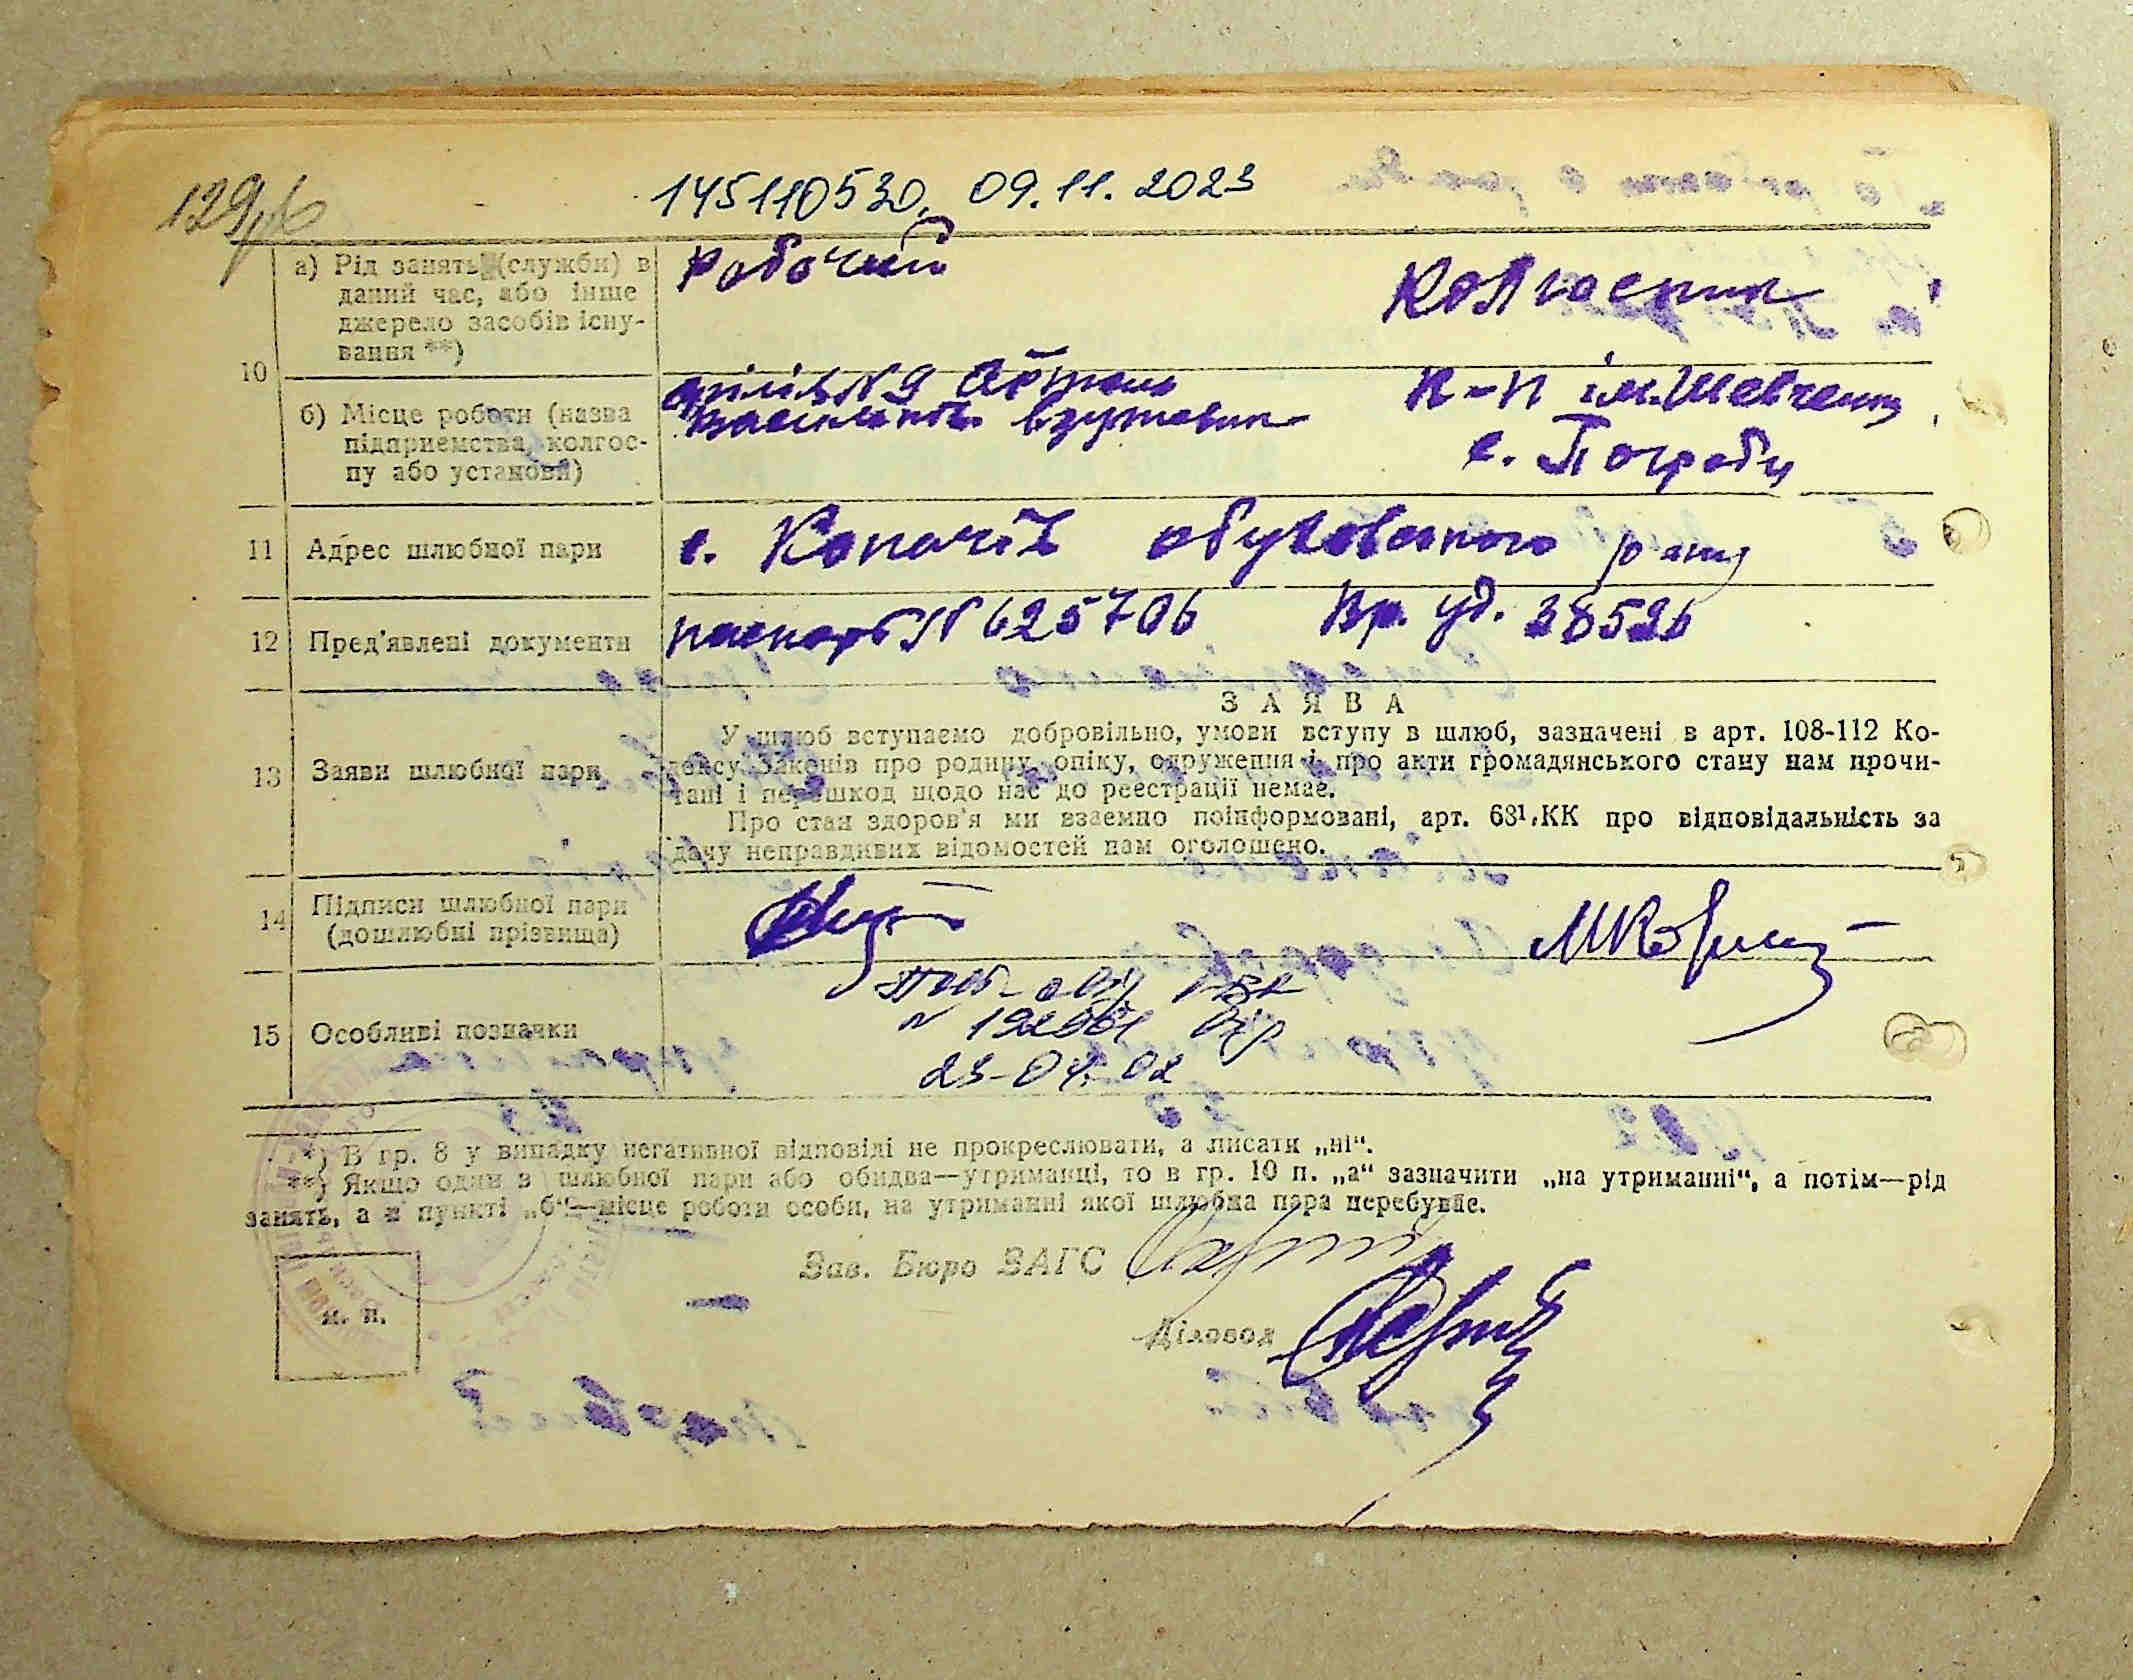 129
145110530, 09.11.2023
а) Рід занять (служби) в
даний час, або інше
джерело засобів існу-
вання **)
Робочий
Колгоспник
10
б) Місце роботи (назва
підприємства, колгос-
пу або установи)
№ 9
К-п ім. Шевченка
с. Погреби
11 Адрес шлюбної пари
с. Копачів обуховського р-ну
12 Пред'явлені документи
паспорт № 625706
вр. уд. 38526
13 Заяви шлюбної пари
ЗАЯВА
У шлюб вступаємо добровільно, умови вступу в шлюб, зазначені в арт. 108-112 Ко-
дексу Законів про родину, опіку, одруження і про акти громадянського стану нам прочи-
тані і перешкод щодо нас до реєстрації немає.
Про стан здоров'я ми взаємно поінформовані, арт. 68¹ КК про відповідальність за
дачу неправдивих відомостей нам оголошено.
14 Підписи шлюбної пари
(дошлюбні прізвища)
15 Особливі позначки
23-04-02
*) В гр. 8 у випадку негативної відповіді не прокреслювати, а писати „ні“.
**) Якщо один з шлюбної пари або обидва—утриманці, то в гр. 10 п. „а“ зазначити „на утриманні“, а потім—рід
занять, а в пункті „б“—місце роботи особи, на утриманні якої шлюбна пара перебуває.
Зав. Бюро ЗАГС
Діловод
м. п.